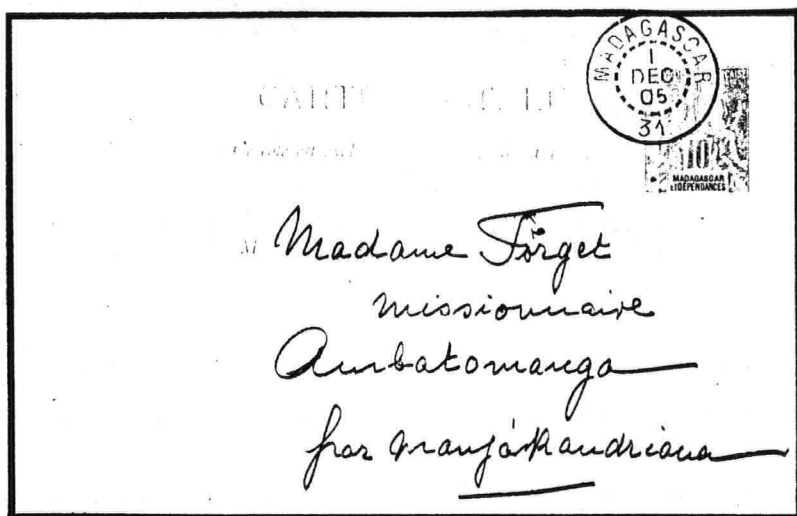 MADAGASCAR
1
DEC
05
31
10
MADAGASCAR
ET DÉPENDANCES
CARTE
M
Madame Förget
missionnaire
Ambatomanga
par Manjakandriana